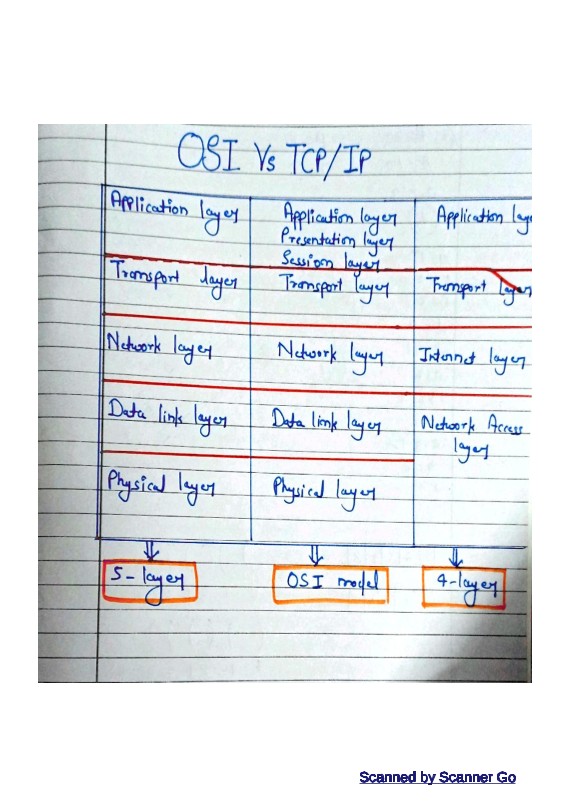 OSI Vs TCP/IP
Application layer Application layer Application
Presentation layer
Session layer
Transport layer Transport layer Transport layer
Network layer Network layer Internet layer
Data link layer Data link layer Network Access
layer
Physical layer Physical layer
5-layer OSI model 4-layer
Scanned by Scanner Go